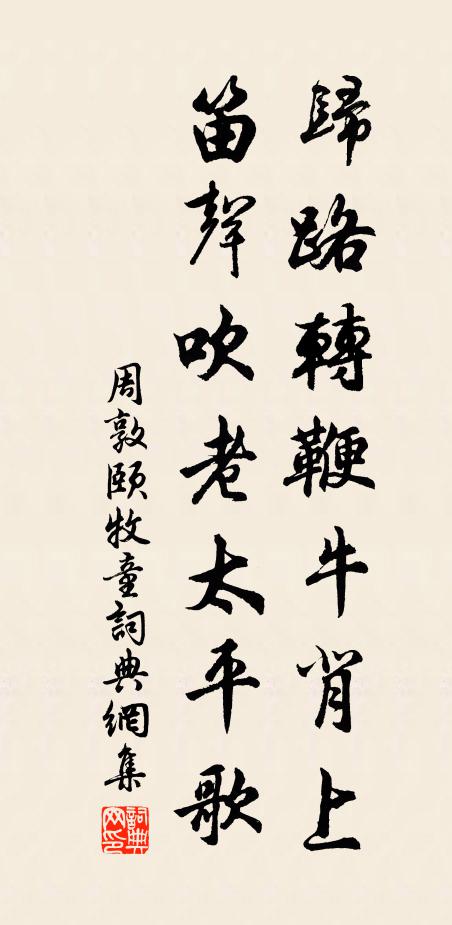 歸路轉鞭牛背上
笛聲吹老太平歌
周敦頤牧童詞典網集
詞典網印